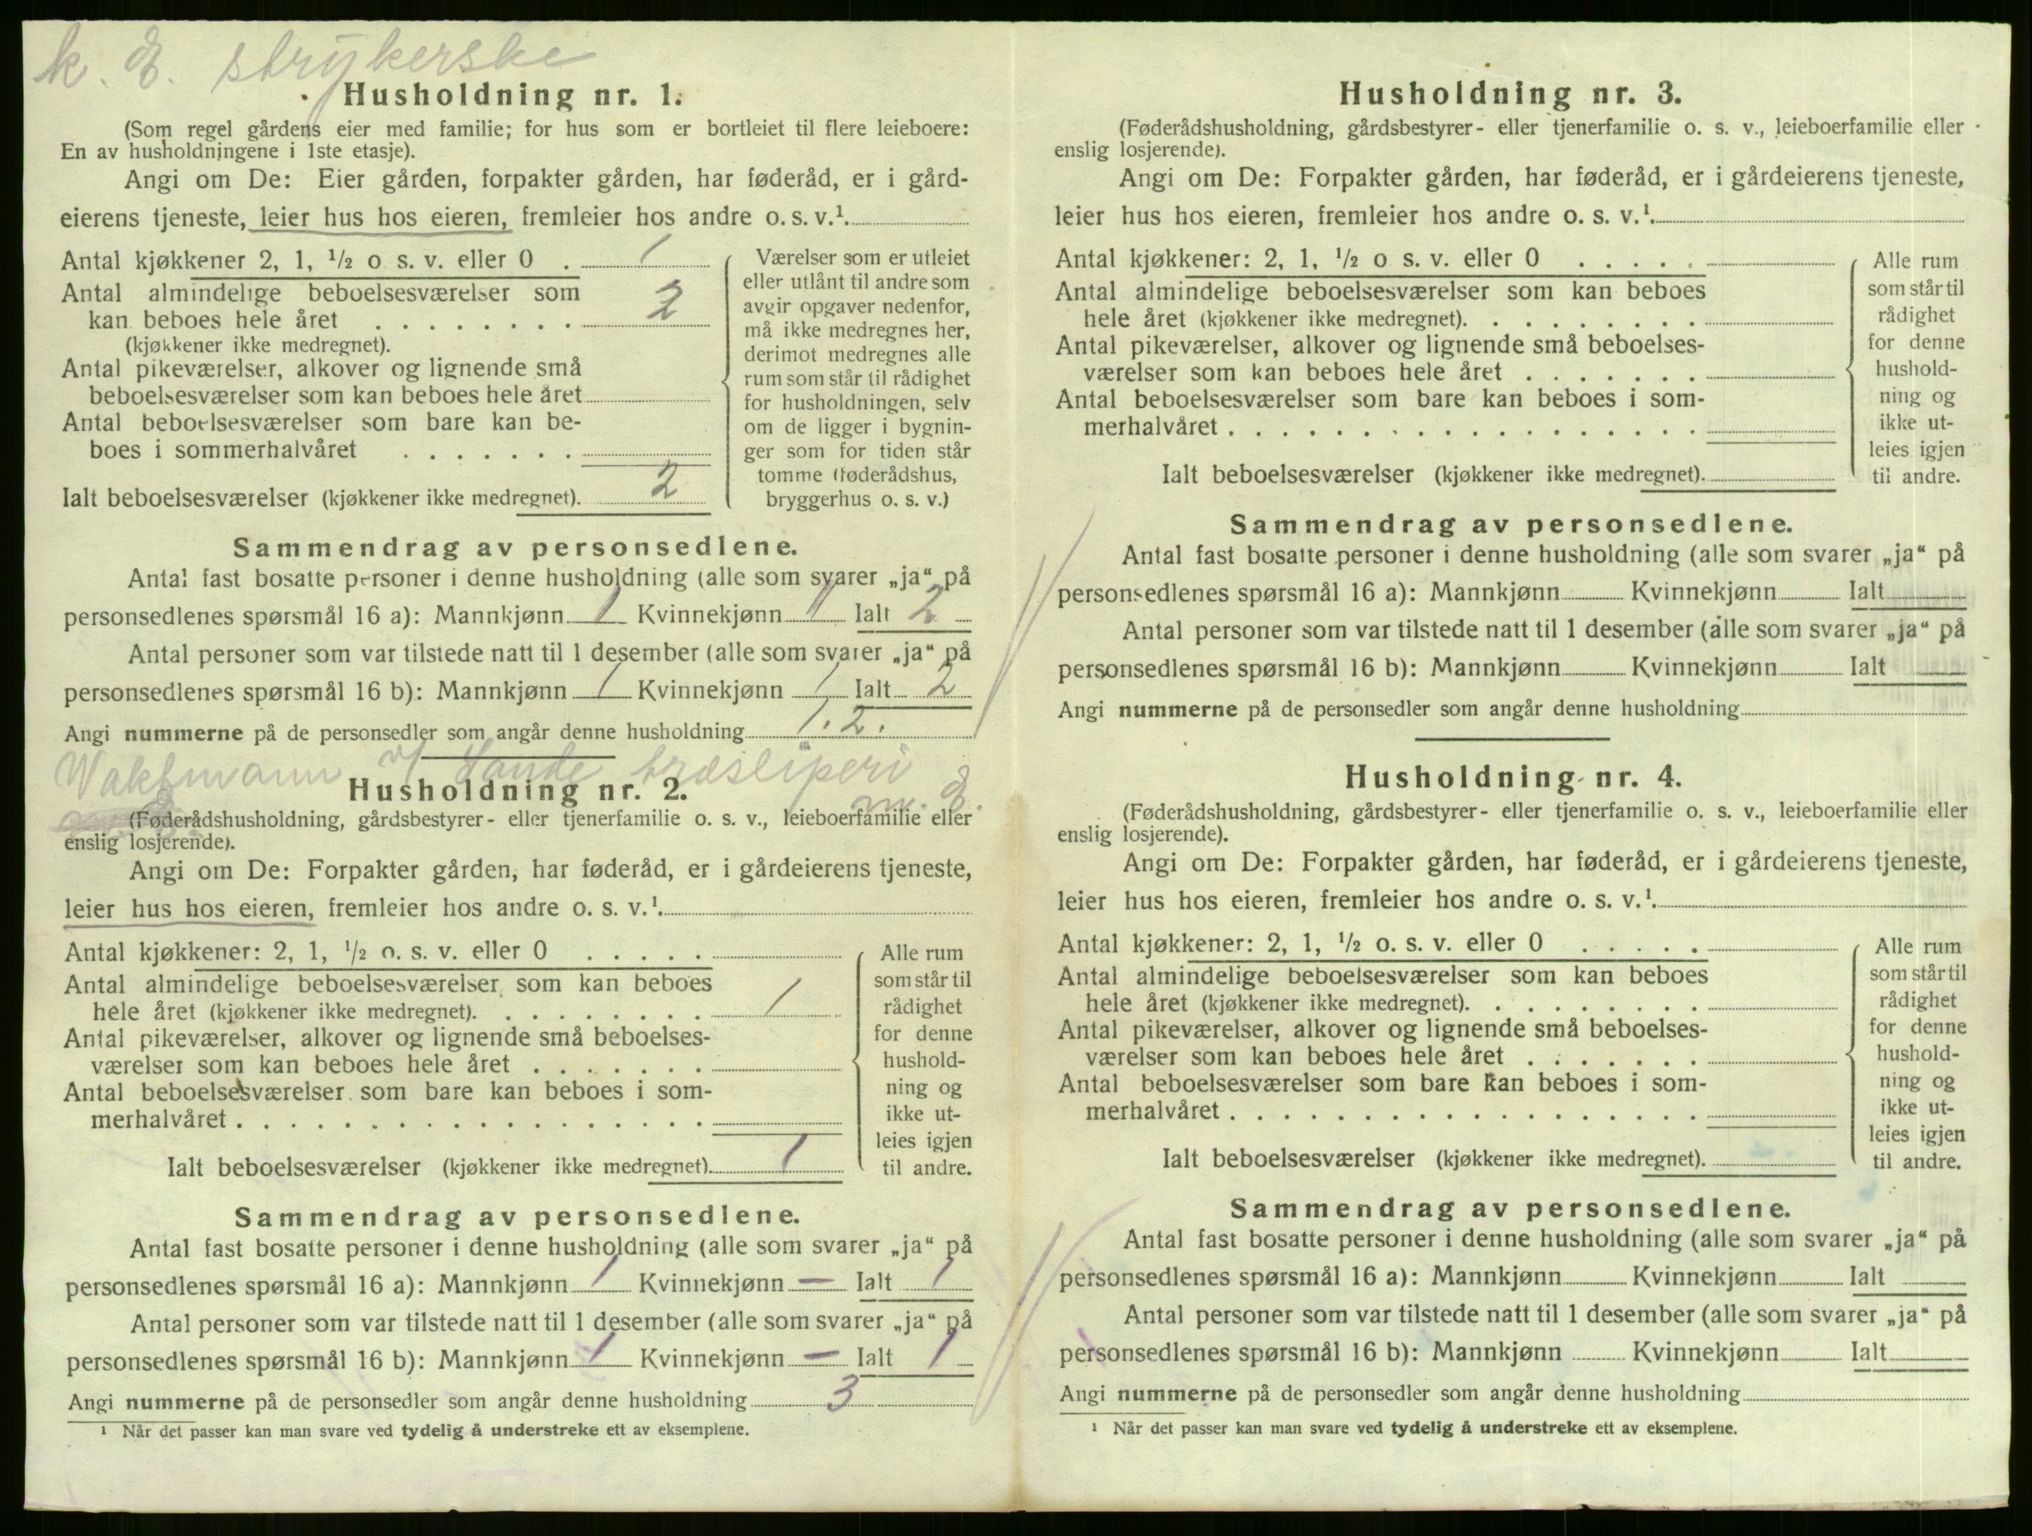 k. E. strykerske
Husholdning nr. 1.
(Som regel gårdens eier med familie; for hus som er bortleiet til flere leieboere:
En av husholdningene i 1ste etasje).
Angi om De: Eier gården, forpakter gården, har føderåd, er i gård-
eierens tjeneste, leier hus hos eieren, fremleier hos andre o. s. v.¹
Antal kjøkkener 2, 1, ½ o s. v. eller 0 . 1
Antal almindelige beboelsesværelser som
kan beboes hele året . . . . . . . . 2
(kjøkkener ikke medregnet).
Antal pikeværelser, alkover og lignende små
beboelsesværelser som kan beboes hele året
Antal beboelsesværelser som bare kan be-
boes i sommerhalvåret . . . . . . .
Ialt beboelsesværelser (kjøkkener ikke medregnet). 2
Værelser som er utleiet
eller utlånt til andre som
avgir opgaver nedenfor,
må ikke medregnes her,
derimot medregnes alle
rum som står til rådighet
for husholdningen, selv
om de ligger i bygnin-
ger som for tiden står
tomme (føderådshus,
bryggerhus o. s. v.)
Sammendrag av personsedlene.
Antal fast bosatte personer i denne husholdning (alle som svarer „ja“ på
personsedlenes spørsmål 16 a): Mannkjønn 1 Kvinnekjønn 1 Ialt 2
Antal personer som var tilstede natt til 1 desember (alle som svarer „ja“ på
personsedlenes spørsmål 16 b): Mannkjønn 1 Kvinnekjønn 1 Ialt 2
Angi nummerne på de personsedler som angår denne husholdning 1. 2.
Waktmann v/ Sande træsliperi
Husholdning nr. 2.
m. E.
(Føderådshusholdning, gårdsbestyrer- eller tjenerfamilie o. s. v., leieboerfamilie eller
enslig losjerende).
Angi om De: Forpakter gården, har føderåd, er i gårdeierens tjeneste,
leier hus hos eieren, fremleier hos andre o. s. v.¹
Antal kjøkkener: 2, 1, ½ o. s. v. eller 0 . . . . .
Antal almindelige beboelsesværelser som kan beboes
hele året (kjøkkener ikke medregnet). . . . . . . . . 1
Antal pikeværelser, alkover og lignende små beboelses-
værelser som kan beboes hele året . . . . . . .
Antal beboelsesværelser som bare kan beboes i som-
merhalvåret . . . . . . . . . . . . . . . . . .
Ialt beboelsesværelser (kjøkkener ikke medregnet). 1
Alle rum
som står til
rådighet
for denne
hushold-
ning og
ikke ut-
leies igjen
til andre.
Sammendrag av personsedlene.
Antal fast bosatte personer i denne husholdning (alle som svarer „ja“ på
personsedlenes spørsmål 16 a): Mannkjønn 1 Kvinnekjønn — Ialt 1
Antal personer som var tilstede natt til 1 desember (alle som svarer „ja“ på
personsedlenes spørsmål 16 b): Mannkjønn 1 Kvinnekjønn — Ialt 1
Angi nummerne på de personsedler som angår denne husholdning 3
¹ Når det passer kan man svare ved tydelig å understreke ett av eksemplene.
Husholdning nr. 3.
(Føderådshusholdning, gårdsbestyrer- eller tjenerfamilie o. s. v., leieboerfamilie eller
enslig losjerende).
Angi om De: Forpakter gården, har føderåd, er i gårdeierens tjeneste,
leier hus hos eieren, fremleier hos andre o. s. v.¹
Antal kjøkkener: 2, 1, ½ o s. v. eller 0 . . . . .
Antal almindelige beboelsesværelser som kan beboes
hele året (kjøkkener ikke medregnet). . . . . . . . .
Antal pikeværelser, alkover og lignende små beboelses-
værelser som kan beboes hele året . . . . . . .
Antal beboelsesværelser som bare kan beboes i som-
merhalvåret . . . . . . . . . . . . . . . . . .
Ialt beboelsesværelser (kjøkkener ikke medregnet).
Alle rum
som står til
rådighet
for denne
hushold-
ning og
ikke ut-
leies igjen
til andre.
Sammendrag av personsedlene.
Antal fast bosatte personer i denne husholdning (alle som svarer „ja“ på
personsedlenes spørsmål 16 a): Mannkjønn Kvinnekjønn Ialt
Antal personer som var tilstede natt til 1 desember (alle som svarer „ja“ på
personsedlenes spørsmål 16 b): Mannkjønn Kvinnekjønn Ialt
Angi nummerne på de personsedler som angår denne husholdning
Husholdning nr. 4.
(Føderådshusholdning, gårdsbestyrer- eller tjenerfamilie o. s. v., leieboerfamilie eller
enslig losjerende).
Angi om De: Forpakter gården, har føderåd, er i gårdeierens tjeneste,
leier hus hos eieren, fremleier hos andre o. s. v.¹
Antal kjøkkener: 2, 1, ½ o. s. v. eller 0 . . . . .
Antal almindelige beboelsesværelser som kan beboes
hele året (kjøkkener ikke medregnet). . . . . . . . .
Antal pikeværelser, alkover og lignende små beboelses-
værelser som kan beboes hele året . . . . . . .
Antal beboelsesværelser som bare kan beboes i som-
merhalvåret . . . . . . . . . . . . . . . . . .
Ialt beboelsesværelser (kjøkkener ikke medregnet).
Alle rum
som står til
rådighet
for denne
hushold-
ning og
ikke ut-
leies igjen
til andre.
Sammendrag av personsedlene.
Antal fast bosatte personer i denne husholdning (alle som svarer „ja“ på
personsedlenes spørsmål 16 a): Mannkjønn Kvinnekjønn Ialt
Antal personer som var tilstede natt til 1 desember (alle som svarer „ja“ på
personsedlenes spørsmål 16 b): Mannkjønn Kvinnekjønn Ialt
Angi nummerne på de personsedler som angår denne husholdning
¹ Når det passer kan man svare ved tydelig å understreke ett av eksemplene.